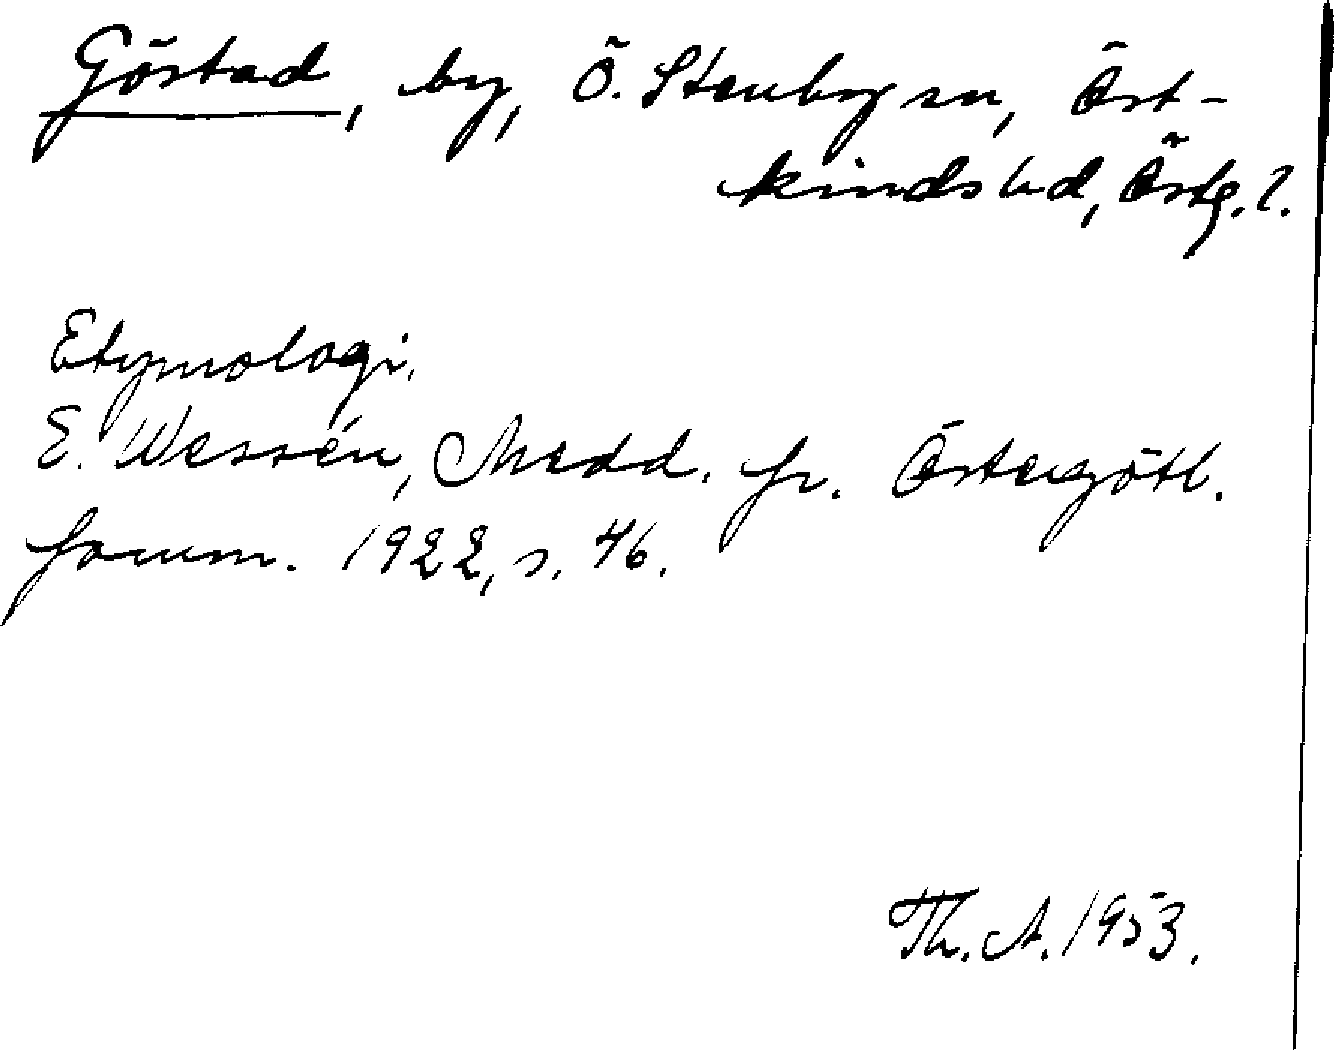 Göstad, by, Ö. Stenby sn, Öst-
kinds hd, Östg. l.
Etymologi.
E. Wessén, Medd. fr. Östergötl.
fornm. 1922, s. 46.
Th. A. 1953.